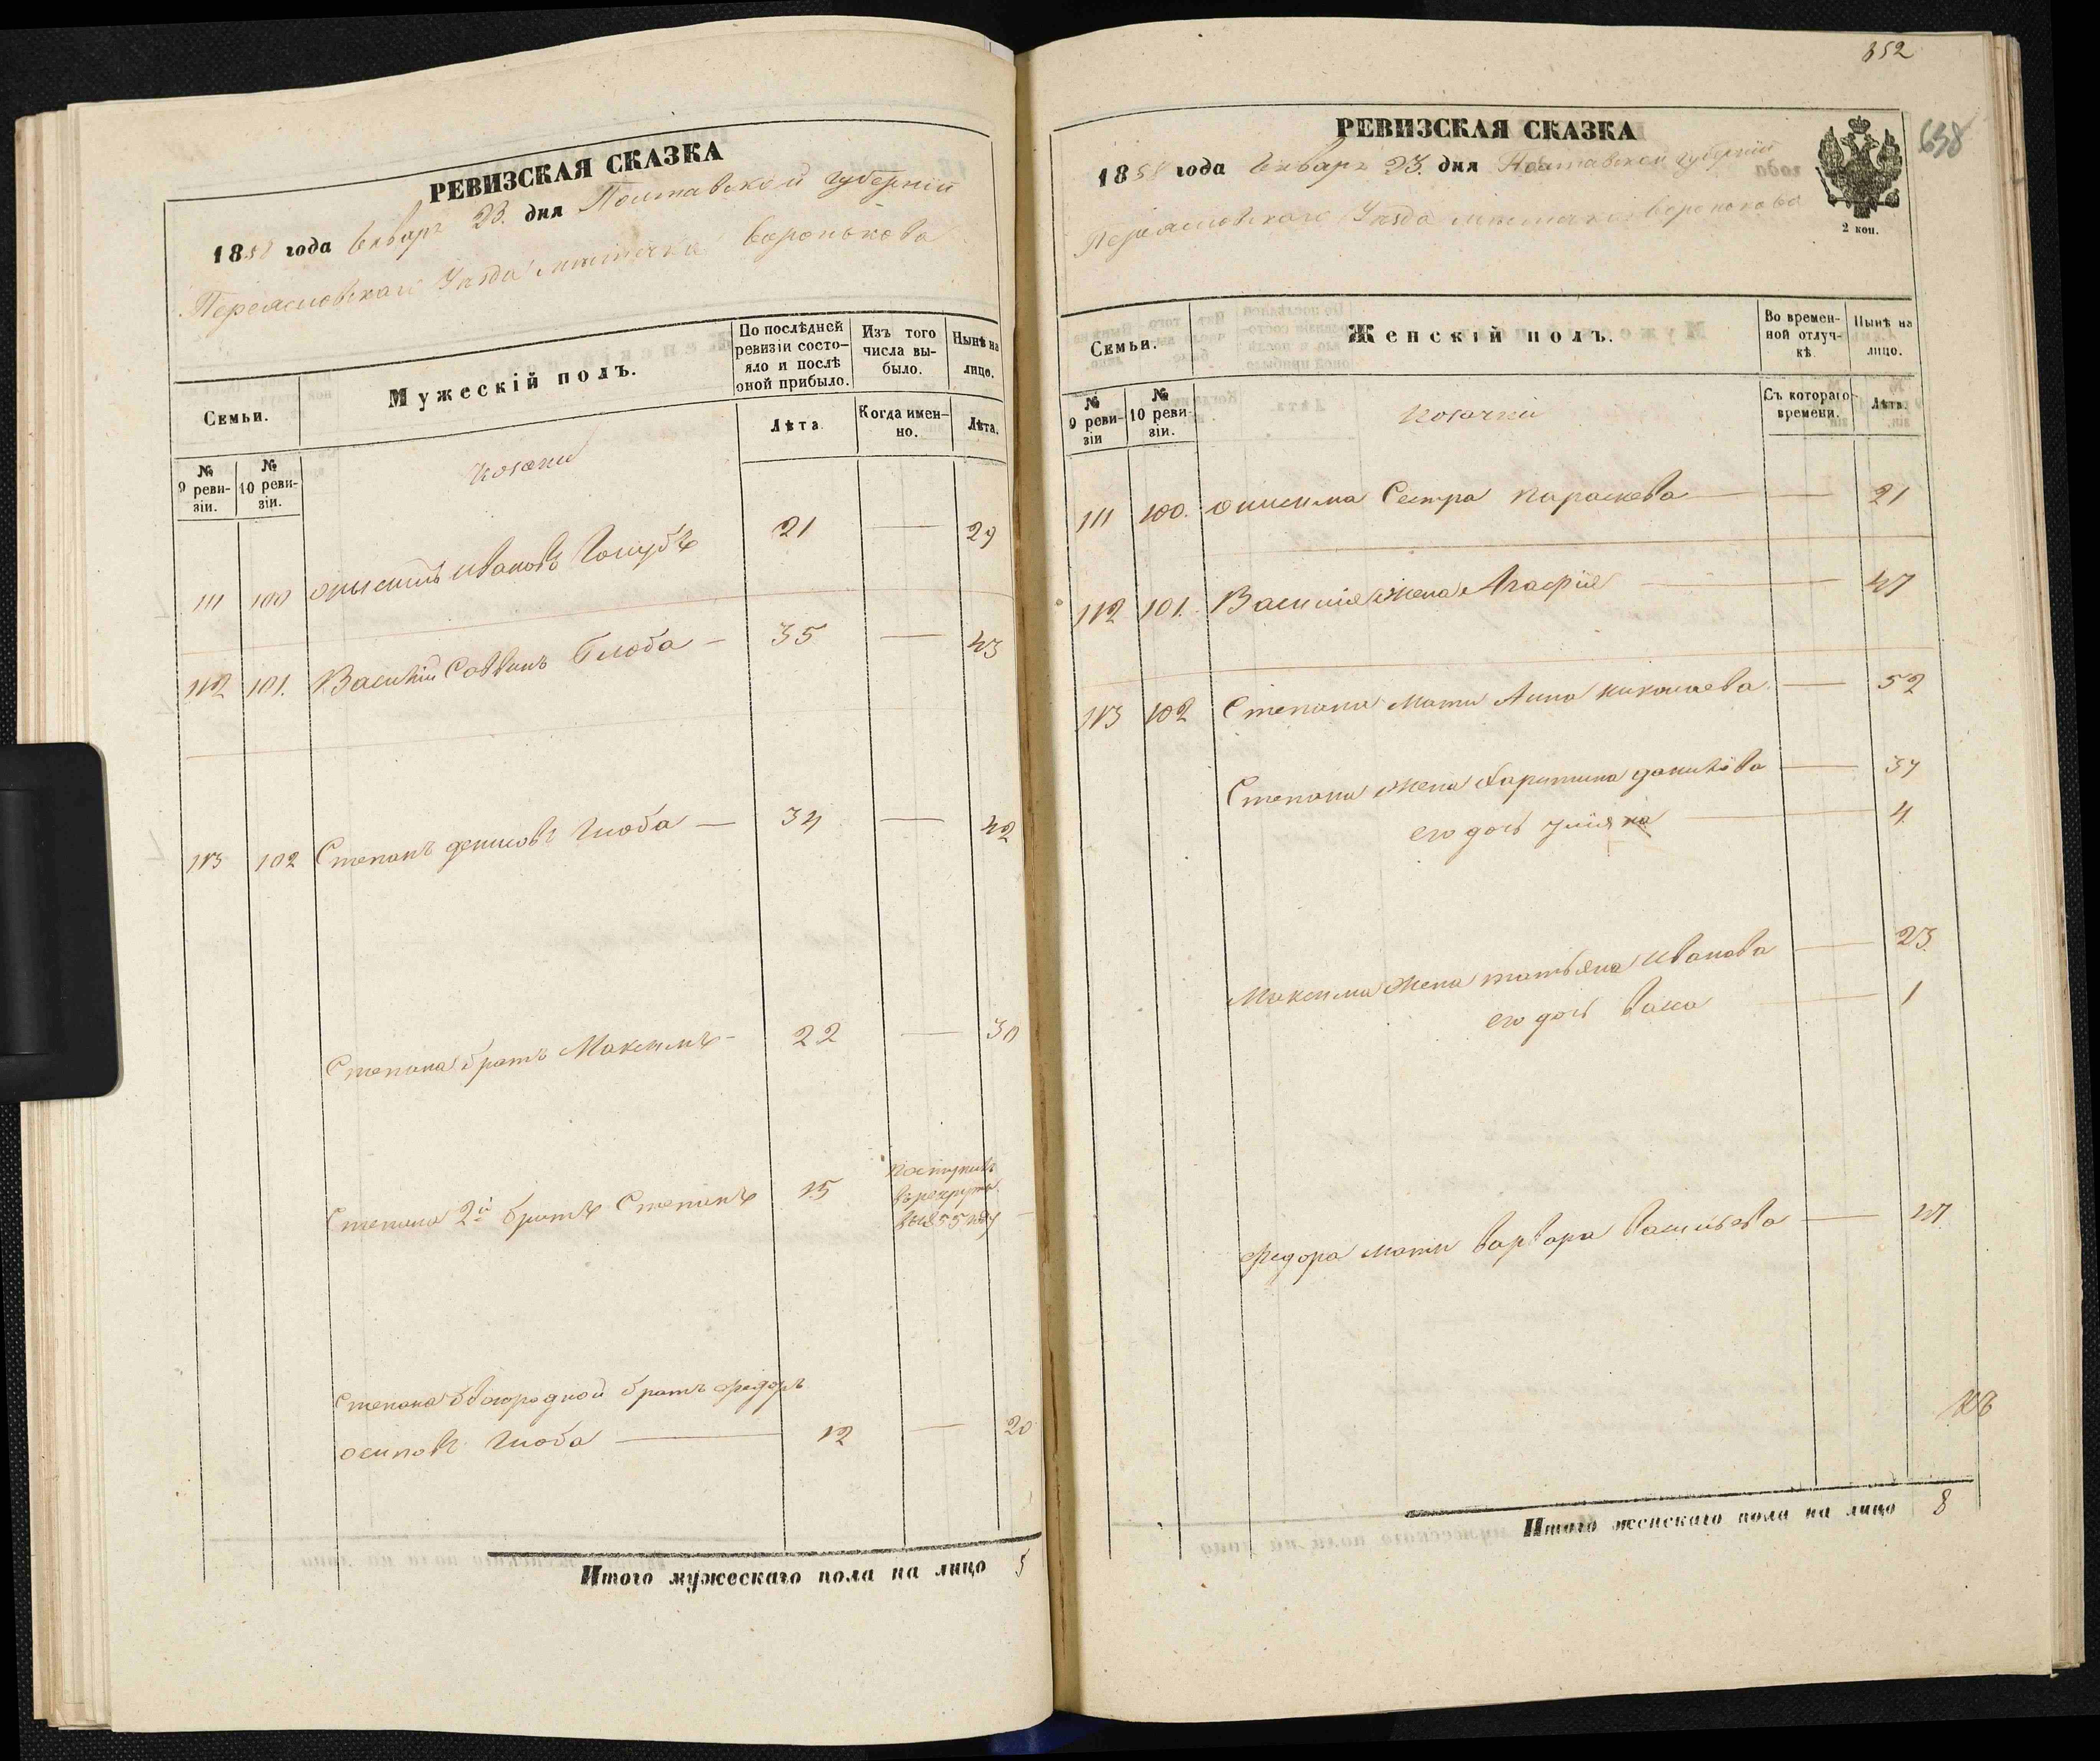 РЕВИЗСКАЯ СКАЗКА
1858 года Январ 23. дня Полтавской губерніи
Переяславскаго Уезда местечка Воронькова
Семьи.
Мужескій полъ.
По послѣдней ревизіи состояло и послѣ оной прибыло.
Изъ того числа выбыло.
Нынѣ на лицо.
№ 9 ревизіи.
№ 10 ревизіи.
козаки
Лѣта
Когда именно.
Лѣта.
111 100 Онысимъ Ивановъ Голубъ 21 — 29
112 101. Василій Саввинъ Глоба — 35 — 43
113 102 Степанъ Денисовъ Глоба — 34 — 42
Степана братъ Максимъ - 22 — 30
Степана 2й братъ Степанъ 15 поступилъ
в рекруты
в 1855 году —
Степана двоюродной братъ Федоръ
Осиповъ Глоба — 12 — 20
Итого мужескаго пола на лицо 5
852
658
РЕВИЗСКАЯ СКАЗКА
1858 года Январ 23. дня Полтавской губерніи
Переяславскаго Уезда местечка Воронькова
2 коп.
Семьи.
Женскій полъ.
Во временной отлучкѣ.
Нынѣ на лицо.
№ 9 ревизіи
№ 10 ревизіи.
козачки
Съ котораго времени.
Лѣта.
111 100. Онисима Сестра Параскева — — 21
112 101. Василія жена Агафія — 47
113 102 Степана мати Анна Николаева. — 52
Степана жена Харитина Данилова — 37
его дочь Улияна — 4
Максима жена татьяна Иванова — 23.
его дочь Васса — 1
Федора мати Варвара Васильева — 47
Итого женскаго пола на лицо 8